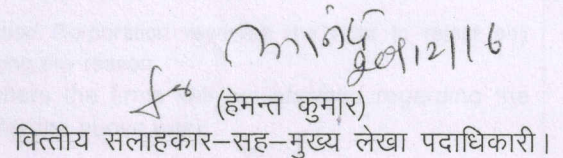 20/12/16
(हेमन्त कुमार)
वित्तीय सलाहकार–सह–मुख्य लेखा पदाधिकारी।